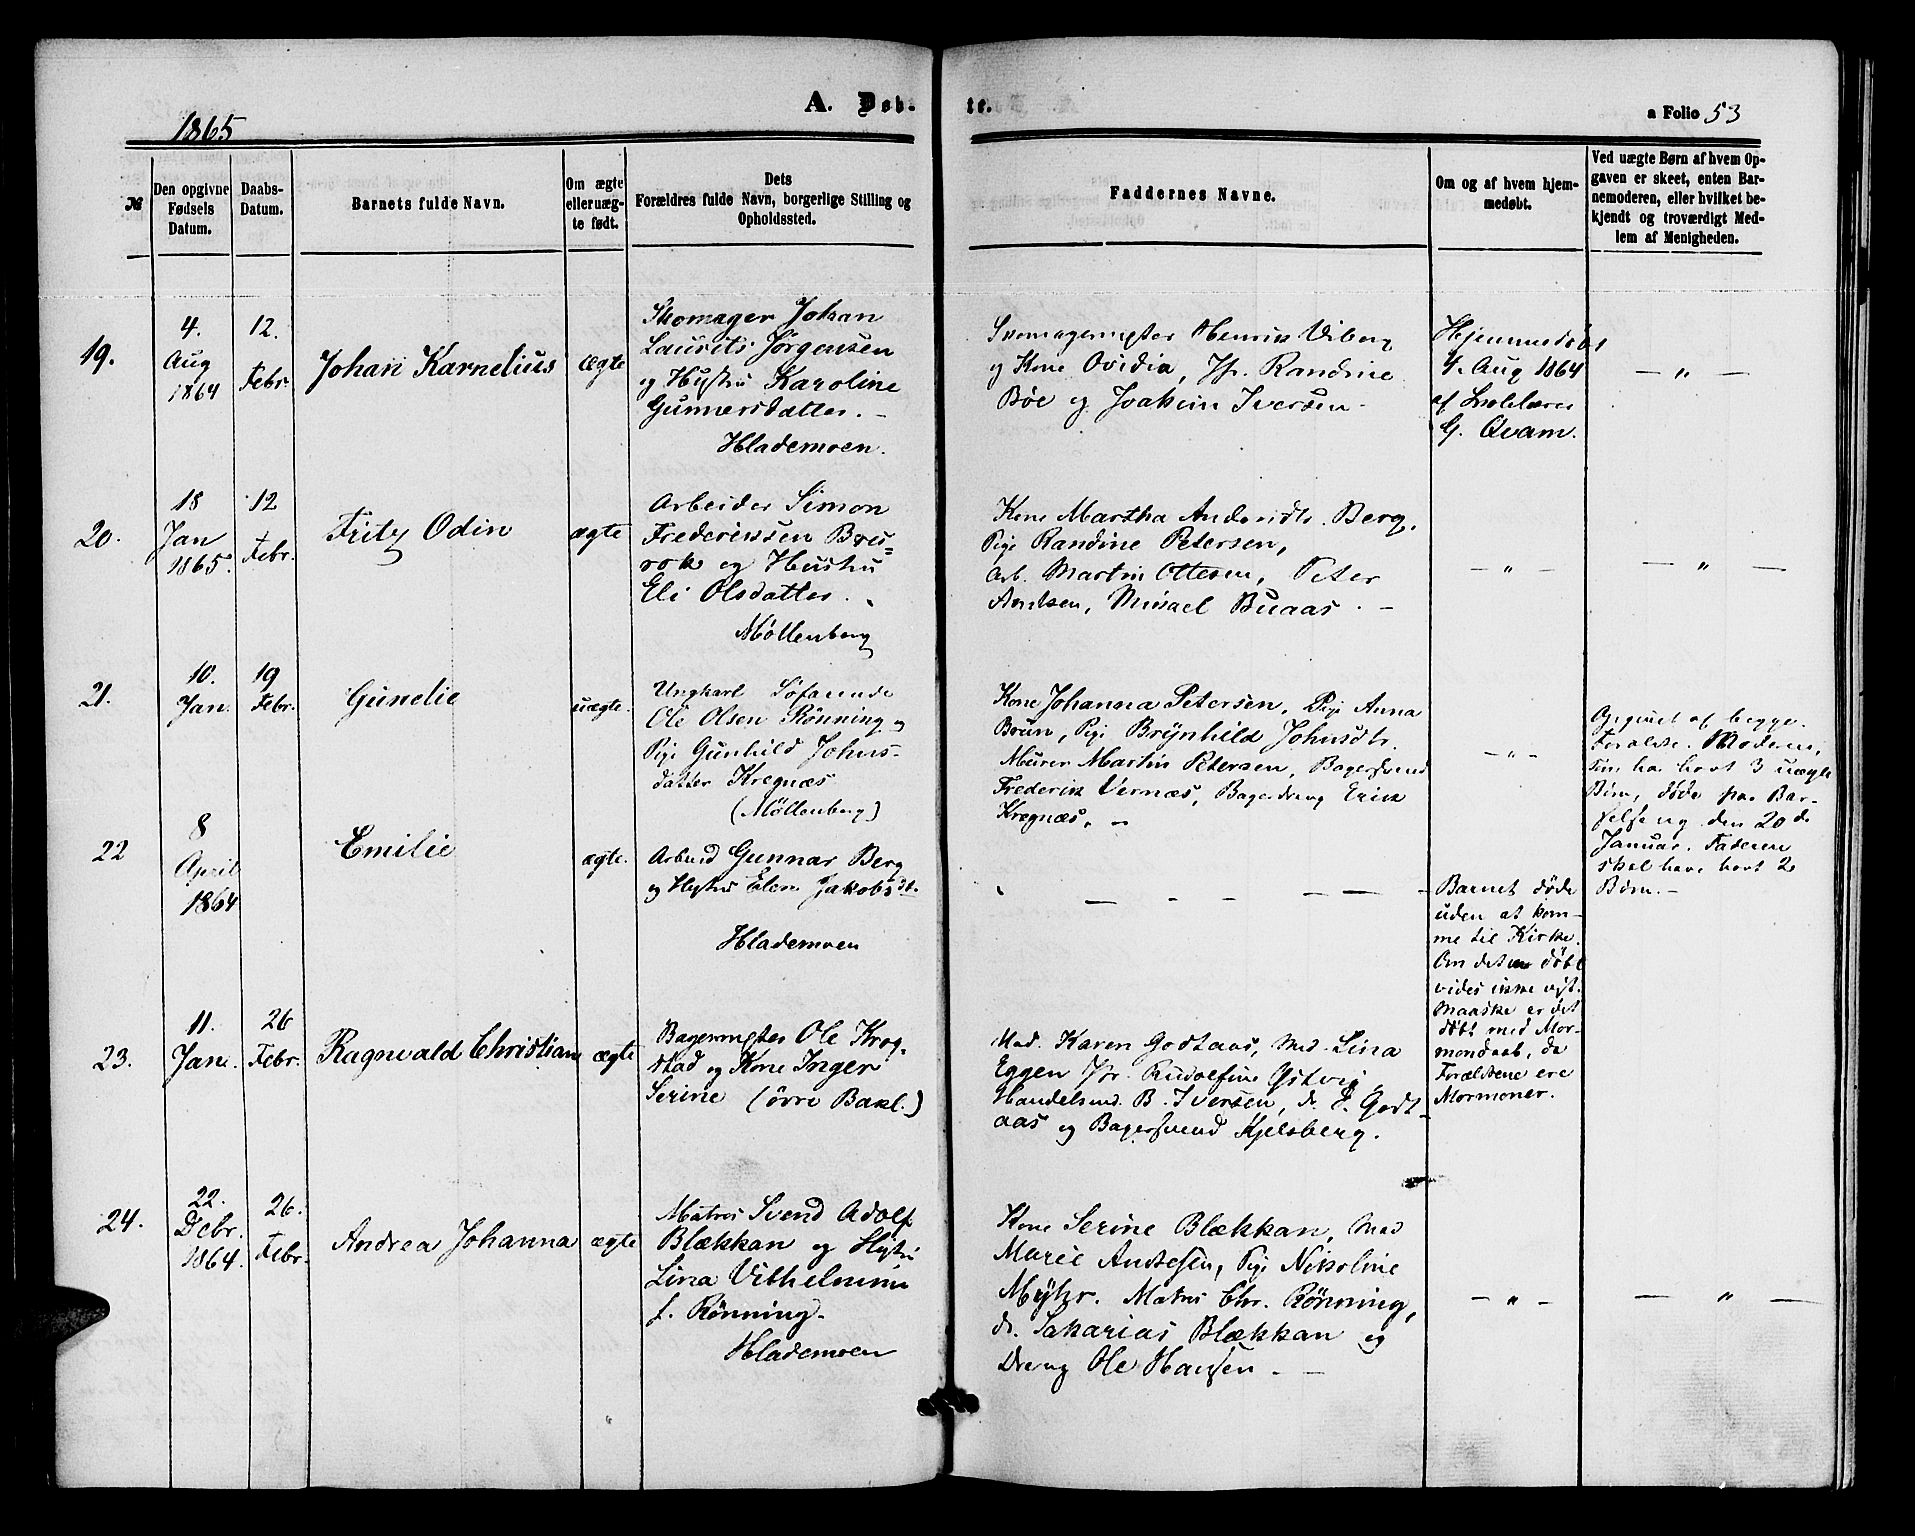 1865
A. Døb-
te.
a Folio 53
№
Den opgivne
Fødsels
Datum.
Daabs-
Datum.
Barnets fulde Navn.
Om ægte
eller uæg-
te født.
Dets
Forældres fulde Navn, borgerlige Stilling og
Opholdssted.
Faddernes Navne.
Om og af hvem hjem-
medøbt.
Ved uægte Børn af hvem Op-
gaven er skeet, enten Bar-
nemoderen, eller hvilket be-
kjendt og troværdigt Med-
lem af Menigheden.
19.
4.
Aug
1864
12.
Febr.
Johan Karnelius
ægte
Skomager Johan
Laurits Jørgensen
og Hustru Karoline
Gunnersdatter. -
Hlademoen.
Skomagermester Henrik Viberg
og Kone Ovidia, Jfr. Randine
Bøe og Joakim Iversen -
Hjemmedøbt
4. Aug 1864
af Skolelærer
G. Qvam.
- „ -
20.
18
Jan
1865.
12
Febr.
Fritz Odin
ægte
Arbeider Simon
Frederiksen Bre-
rok og Hustru
Eli Olsdatter.
Møllenberg
Kone Martha Andersdtr. Berg,
Pige Randine Petersen,
Arb. Martin Ottesen, Peter
Arntsen, Misael Buaas. -
- „ -
- „ -
21.
10.
Jan.
19
Febr.
Gunelie
uægte.
Ungkarl Søfarende
Ole Olsen Rønning og
Pige Gunhild Johns-
datter Kregnæs
(Møllenberg)
Kone Johanna Petersen, Pige Anna
Brun, Pige Brynhild Johnsdtr.
Murer Martin Petersen, Bagersvend
Frederik Vernæs, Bagerdreng Erik
Kregnæs. -
- „ -
Opgivet af begge
Forældre. Moderen,
som har havt 3 uægte
Børn, døde paa Bar-
selseng den 20de
Januar. Faderen
skal have havt 2
Børn. -
22
8
April
1864
Emilie
ægte.
Arbeid Gunnar Berg
og Hustru Elen Jakobsdt.
Hlademoen
- - - - - -
Barnet døde
uden at kom-
me til Kirke.
Om det er døbt
vides ikke vist.
Maaske er det
døbt med Mor-
mondaab, da
Forældrene ere
Mormoner.
23.
11.
Jan.
26
Febr.
Ragnvald Christian
ægte
Bagermester Ole Krog-
stad og Kone Inger
Serine (øvre Bakl.)
Mad. Karen Godtaas, Mad. Lina
Eggen Jfr. Rudolfine Ystvig,
Handelsmd. B. Iversen, do. E. Godt-
aas og Bagersvend Kjelsberg.
24.
22.
Debr.
1864.
26.
Febr.
Andrea Johanna
ægte
Matros Svend Adolf
Blækkan og Hustru
Lina Vilhelmine
f. Rønning.
Hlademoen
Kone Serine Blækkan, Mad
Marie Andresen, Pige Nikoline
Myhr. Matros Chr. Rønning,
do. Sakarias Blækkan og
Dreng Ole Hansen. -
- „ -
- „ -